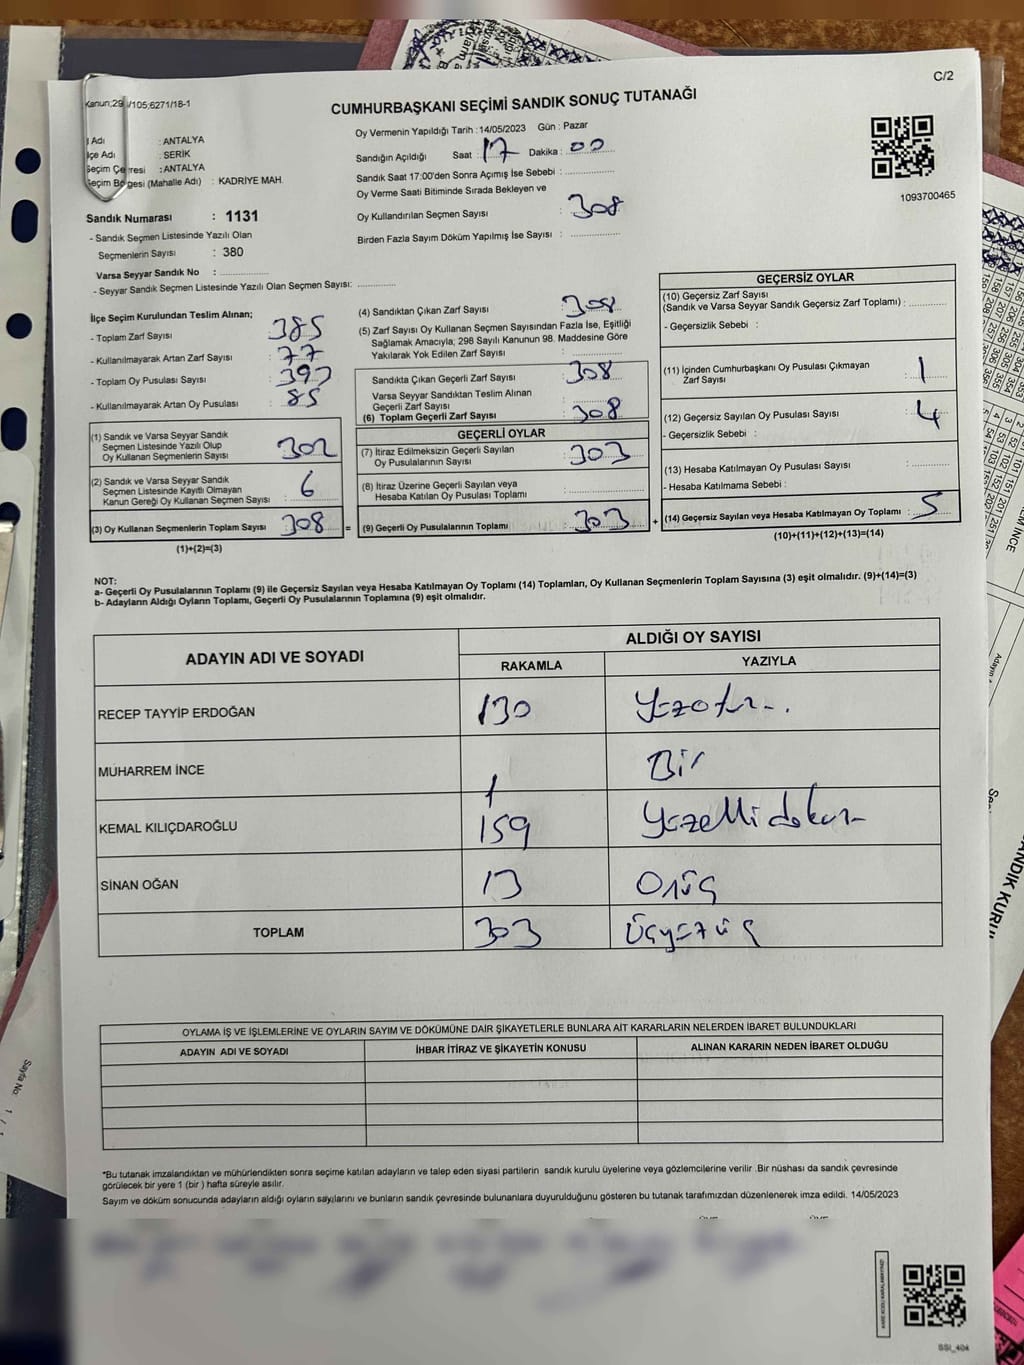 C/2
Kanun;29 /105;6271/18-1
CUMHURBAŞKANI SEÇİMİ SANDIK SONUÇ TUTANAĞI
Adı : ANTALYA
İlçe Adı : SERİK
Seçim Çevresi : ANTALYA
Seçim Bölgesi (Mahalle Adı) : KADRİYE MAH.
Oy Vermenin Yapıldığı Tarih :14/05/2023 Gün : Pazar
Sandığın Açıldığı Saat 17 Dakika : 00
Sandık Saat 17:00'den Sonra Açımış İse Sebebi :
Oy Verme Saati Bitiminde Sırada Bekleyen ve
Oy Kullandırılan Seçmen Sayısı : 308
Birden Fazla Sayım Döküm Yapılmış İse Sayısı :
1093700465
Sandık Numarası : 1131
- Sandık Seçmen Listesinde Yazılı Olan
Seçmenlerin Sayısı : 380
Varsa Seyyar Sandık No :
- Seyyar Sandık Seçmen Listesinde Yazılı Olan Seçmen Sayısı:
İlçe Seçim Kurulundan Teslim Alınan;
- Toplam Zarf Sayısı : 385
- Kullanılmayarak Artan Zarf Sayısı : 77
- Toplam Oy Pusulası Sayısı :
- Kullanılmayarak Artan Oy Pusulası : 85
(1) Sandık ve Varsa Seyyar Sandık
Seçmen Listesinde Yazılı Olup
Oy Kullanan Seçmenlerin Sayısı : 302
(2) Sandık ve Varsa Seyyar Sandık
Seçmen Listesinde Kayıtlı Olmayan
Kanun Gereği Oy Kullanan Seçmen Sayısı : 6
(3) Oy Kullanan Seçmenlerin Toplam Sayısı : 308
(1)+(2)=(3)
(4) Sandıktan Çıkan Zarf Sayısı : 308
(5) Zarf Sayısı Oy Kullanan Seçmen Sayısından Fazla İse, Eşitliği
Sağlamak Amacıyla; 298 Sayılı Kanunun 98. Maddesine Göre
Yakılarak Yok Edilen Zarf Sayısı :
Sandıkta Çıkan Geçerli Zarf Sayısı : 308
Varsa Seyyar Sandıktan Teslim Alınan
Geçerli Zarf Sayısı :
(6) Toplam Geçerli Zarf Sayısı : 308
GEÇERLİ OYLAR
(7) İtiraz Edilmeksizin Geçerli Sayılan
Oy Pusulalarının Sayısı : 303
(8) İtiraz Üzerine Geçerli Sayılan veya
Hesaba Katılan Oy Pusulası Toplamı :
= (9) Geçerli Oy Pusulalarının Toplamı : 303
GEÇERSİZ OYLAR
(10) Geçersiz Zarf Sayısı
(Sandık ve Varsa Seyyar Sandık Geçersiz Zarf Toplamı) :
- Geçersizlik Sebebi :
(11) İçinden Cumhurbaşkanı Oy Pusulası Çıkmayan
Zarf Sayısı : 1
(12) Geçersiz Sayılan Oy Pusulası Sayısı : 4
- Geçersizlik Sebebi :
(13) Hesaba Katılmayan Oy Pusulası Sayısı :
- Hesaba Katılmama Sebebi :
+ (14) Geçersiz Sayılan veya Hesaba Katılmayan Oy Toplamı : 5
(10)+(11)+(12)+(13)=(14)
NOT:
a- Geçerli Oy Pusulalarının Toplamı (9) ile Geçersiz Sayılan veya Hesaba Katılmayan Oy Toplamı (14) Toplamları, Oy Kullanan Seçmenlerin Toplam Sayısına (3) eşit olmalıdır. (9)+(14)=(3)
b- Adayların Aldığı Oyların Toplamı, Geçerli Oy Pusulalarının Toplamına (9) eşit olmalıdır.
ADAYIN ADI VE SOYADI
ALDIĞI OY SAYISI
RAKAMLA YAZIYLA
RECEP TAYYİP ERDOĞAN 130 Yüzotuz.
MUHARREM İNCE 1 Bir
KEMAL KILIÇDAROĞLU 159 Yüzellidokuz
SİNAN OĞAN 13 Onüç
TOPLAM 303 Üçyüzüç
OYLAMA İŞ VE İŞLEMLERİNE VE OYLARIN SAYIM VE DÖKÜMÜNE DAİR ŞİKAYETLERLE BUNLARA AİT KARARLARIN NELERDEN İBARET BULUNDUKLARI
ADAYIN ADI VE SOYADI İHBAR İTİRAZ VE ŞİKAYETİN KONUSU ALINAN KARARIN NEDEN İBARET OLDUĞU
*Bu tutanak imzalandıktan ve mühürlendikten sonra seçime katılan adayların ve talep eden siyasi partilerin sandık kurulu üyelerine veya gözlemcilerine verilir .Bir nüshası da sandık çevresinde
görülecek bir yere 1 (bir ) hafta süreyle asılır.
Sayım ve döküm sonucunda adayların aldığı oyların sayılarını ve bunların sandık çevresinde bulunanlara duyurulduğunu gösteren bu tutanak tarafımızdan düzenlenerek imza edildi. 14/05/2023
Sayfa No: 1 / 1
SSI_404